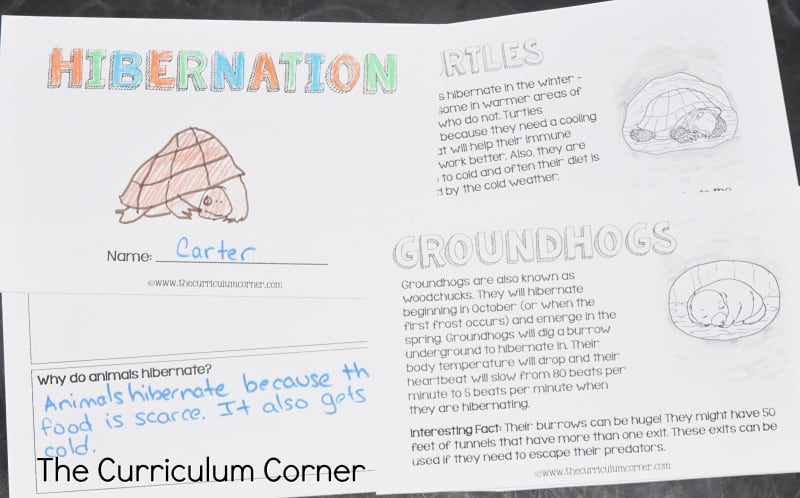 HIBERNATION
Name: Carter
©www.thecurriculumcorner.com
RTLES
s hibernate in the winter -
some in warmer areas of
who do not. Turtles
because they need a cooling
at will help their immune
work better. Also, they are
to cold and often their diet is
d by the cold weather.
GROUNDHOGS
Groundhogs are also known as
woodchucks. They will hibernate
beginning in October (or when the
first frost occurs) and emerge in the
spring. Groundhogs will dig a burrow
underground to hibernate in. Their
body temperature will drop and their
heartbeat will slow from 80 beats per
minute to 5 beats per minute when
they are hibernating.
Interesting Fact: Their burrows can be huge! They might have 50
feet of tunnels that have more than one exit. These exits can be
used if they need to escape their predators.
©www.thecurriculumcorner.com
Why do animals hibernate?
Animals hibernate because th
food is scarce. It also gets
cold.
The Curriculum Corner